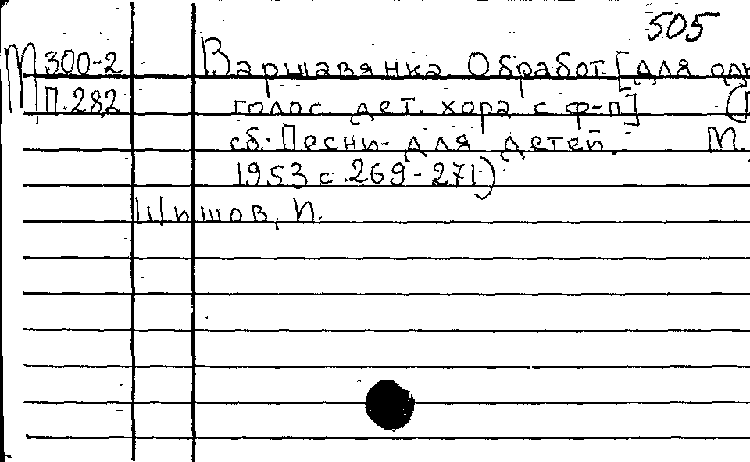 505
М 300-2 Варшавянка Обработ. [для одн
П.282 голос. дет. хора с ф-п] (
сб. Песни для детей. М.
1953 с. 269-271)
Шишов, И.